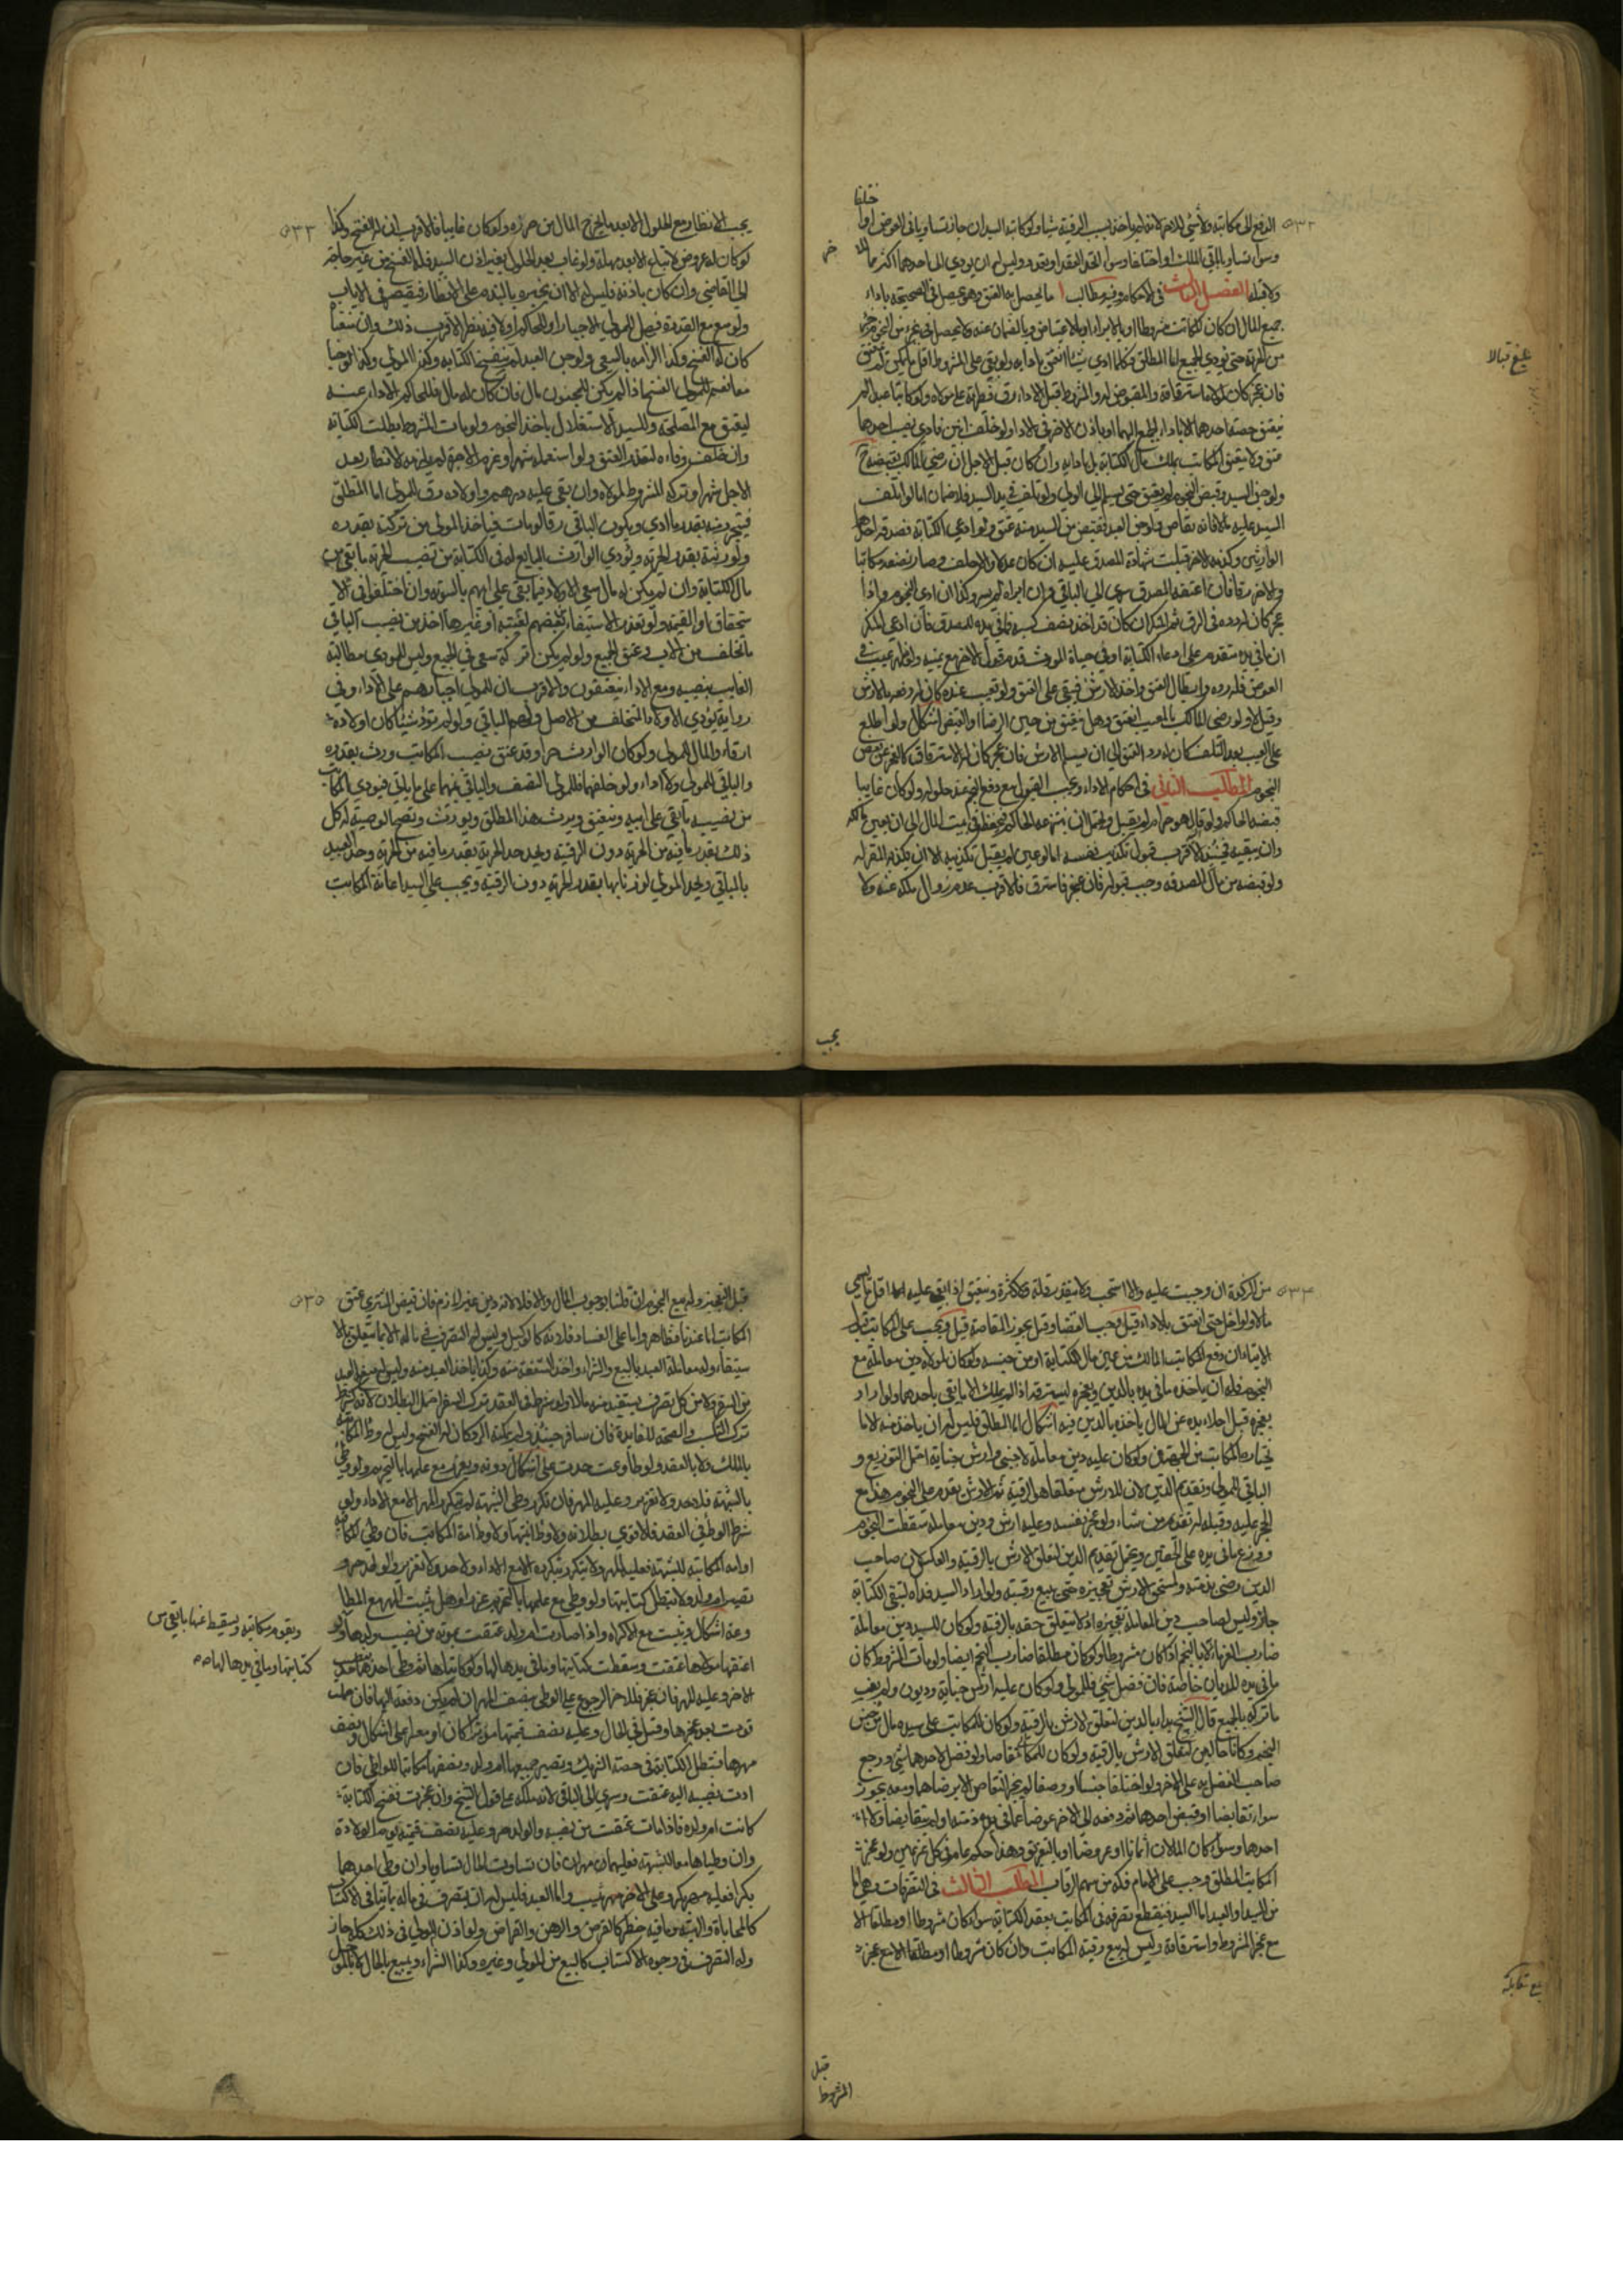 الدفع الى مكاتبه ولا شئ للاخر لانه لم ياخذ بسبب الرقية شيئا ولو كاتبه السيدان جاز تساويا في العوض او اختلفا
وسواء تساويا في الملك او اختلفا وسواء اتحد العقد او تعدد وليس له ان يودي الى احدهما اكثر مما للاخر
ولا قبله الفصل الثالث في الاحكام وفيه مطالب ا ما يحصل به العتق وهو يحصل في الصحيحة باداء
جميع المال ان كان كانت مشروطا او بالابراء او بالاعتياض وبالضمان عنه ولا يحصل في جزء من النجوم جزء
من الحرية حتى يودي الجميع اما المطلق فكلما ادى شيئا انعتق بادائه ولو بقي على المشروط اقل ما يكون لم ينعتق
فان عجز كان لمولاه استرقاقه والمقبوض له والمشروط قبل الاداء رق فطرته على مولاه ولو كاتبا عبدا لم
ينعتق حصة احدهما الا باداء الجميع اليهما او باذن الاخر في الاداء ولو خلف ابنين فادى نصيب احدهما
عتق ولا يعتق المكاتب بملك مال الكتابة بل بادائه وان كان قبل الاجل ان رضي المالك بقبضه ح
ولو جن السيد وقبض النجوم لم يعتق حتى يسلم الى الولي ولو تلف في يد السيد فلا ضمان اما لو اتلف
السيد عليه مالا فانه يقاص ولو جن العبد فقبض منه السيد عتق ولو ادعى الكتابة فصدقه احد
الوارثين وكذبه الاخر قبلت شهادة المصدق عليه ان كان عدلا والا حلف وصار نصفه مكاتبا
والاخر رقا فان اعتقه المصدق سرى الى الباقي وان ابراه لم يسر وكذا ان ادى النجوم واذا
عجز كان له رده في الرق ثم المنكر ان كان قد اخذ نصف كسبه فما في يده للمصدق فان ادعى المنكر
ان ما في يده متقدم على ادعاء الكتابة او في حياة المورث قدم قول الاخر مع يمينه ولو ظهر عيب في
العوض فله رده وابطال العتق واخذ الارش فيبقى على العتق ولو تعيب عنده كان له رده بالارش
وقيل لا ولو رضي المالك بالمعيب انعتق وهل ينعتق من حين الرضا او القبض اشكال ولو اطلع
على العيب بعد التلف كان له رد العتق الى ان يسلم الارش فان عجز كان له الاسترقاق كالعجز عن بعض
النجوم المطلب الثاني في احكام الاداء ويجب القبول مع دفع النجم عند حلوله ولو كان غايبا
قبضه الحاكم ولو قال هو حرام لم يقبل ويحتمل ان ينتزعه الحاكم فيحفظه في بيت المال الى ان يعين مالكه
وان يبقيه فحينئذ الاقرب قبول تكذيب نفسه اما لو عين لم يقبل تكذيبه الا ان يكذبه المقر له
ولو قبضه من مال الصدقة وجب قبوله فان عجز فاسترق فالاقرب عدم زوال ملكه عنه ولا
يجب
يجب الانظار مع الحلول الا بعد ما يخرج المال من حرزه ولو كان غايبا فالاقرب ان له الفسخ وكذا
لو كان له عروض لا تباع الا بعد مهلة ولو غاب بعد الحلول بغير اذن السيد فله الفسخ من غير حاجة
الى القاضي وان كان باذنه فليس له الا ان يخبره بالندم على الانظار فيقصر في الاياب
ولو مع القدرة فهل للمولى الاجبار او للحاكم اولا فيه نظر الاقرب ذلك وان شفعا
كان له الفسخ وكذا الزامه بالسعي ولو جن العبد لم ينفسخ الكتابة وكذا المولى وكذا لو جنا
معا نعم للمولى الفسخ اذا لم يكن للمجنون مال فان كان له مال فللحاكم الاداء عنه
ليعتق مع المصلحة وللسيد الاستقلال باخذ النجوم ولو مات المشروط بطلت الكتابة
وان خلف وفاء لتعذر العتق ولو استعمله شهرا وغرم الاجرة لم يلزمه الانظار بعد
الاجل شهرا وتركة المشروط لمولاه وان بقي عليه درهم واولاده رق للمولى اما المطلق
فيتحرر منه بقدر ما ادى ويكون الباقي رقا لو مات فياخذ المولى من تركته بقدره
ولورثته بقدر الحرية ويؤدي الوارث التابع له في الكتابة من نصيب الحرية ما بقي من
مال الكتابة وان لم يكن له مال سعى الاولاد فيما بقي على ابيهم بالسوية وان اختلفوا في الا
ستحقاق او القيمة ولو تعذر الاستيفاء من بعضهم لغيبته او غيرها اخذ من نصيب الباقي
ما تخلف من الاب وعتق الجميع ولو لم يكن تركة سعى في الجميع وليس للمودي مطالبة
الغايب بنصيبه ومع الاداء ينعتقون والاقرب ان للمولى اجبارهم على الاداء وفي
رواية يؤدي الاولاد المتخلف من الاصل ولهم الباقي ولو لم تؤد شيئا كان اولاده
ارقاء والمال للمولى ولو كان الوارث حرا وقد عتق نصيب المكاتب ورث بقدره
والباقي للمولى ولا اداء ولو خلفهما فللمولى النصف والباقي بينهما على ما بقي فيودي المكاتب
من نصيبه ما بقي على ابيه وينعتق ويرث هذا المطلق ويورث وتصح الوصية له كل
ذلك بقدر ما فيه من الحرية دون الرقية ويحد حد الحرية بقدر ما فيه من الحرية وحد العبيد
بالباقي ويحد المولى لو زنا بها بقدر الحرية دون الرقية ويجب على السيد اعانة المكاتب
من الزكوة ان وجبت عليه والا استحب ولا يتقدر قلة وكثرة وينعتق اذا بقي عليه اقل ما يسمى
مالا ولو اخل حتى انعتق بالاداء قيل وجب القضا وقيل يجوز المقاصة قبل ويجب على المكاتب قبول
الايتاء ان دفع المكاتب المالك من عين مال الكتابة او من جنسه ولو كان لمولاه دين معاملة مع
النجوم فله ان ياخذ ما في يده بالدين ويعجزه ليسترقه اذا لم يملك الا ما يفي باحدهما ولو اراد
تعجيزه قبل اخلاء يده عن المال ياخذه بالدين ففيه اشكال اما المطلق فليس له ان ياخذ منه الا ما
يختاره المكاتب من الجهتين ولو كان عليه دين معاملة لاجنبي وارش جناية احتمل التوزيع و
الباقي للمولى وتقديم الدين لان للارش متعلقا هي الرقبة ثم الارش يقدم على النجوم هذا مع
الحجر عليه وقبله له تقديم من شاء ولو عجز نفسه وعليه ارش ودين معاملة سقطت النجوم
ووزع ما في يده على الحقين ويحتمل تقديم الدين لتعلق الارش بالرقبة والعكس لان صاحب
الدين رضي بذمته ولمستحق الارش تعجيزه حتى يبيع رقبته ولو اراد السيد فداه لتبقى الكتابة
جاز وليس لصاحب دين المعاملة تعجيزه اذ لا يتعلق حقه بالرقبة ولو كان للسيد دين معاملة
ضارب الغرماء لا بالنجم اذا كان مشروطا ولو كان مطلقا ضارب بالنجم ايضا ولو مات المشروط كان
ما في يده للديان خاصة فان فضل شئ فللمولى ولو كان عليه ارش جناية وديون ولم يف
ما تركه بالجميع قال الشيخ يبدا بالدين لتعلق الارش بالرقبة ولو كان للمكاتب على سيده مال من جنس
النجم وكانا حالين تقاصا ولو فضل لاحدهما شئ رجع
صاحب الفضل به على الاخر ولو اختلفا جنسا او وصفا لم يجز التقاص الا برضاهما ومعه يجوز
سواء تقابضا او قبض احدهما ثم دفعه الى الاخر عوضا عما في ذمته او لم يتقابضا ولا
احدهما وسواء كان المالان اثمانا او عروضا او بالتفريق وهذا حكم عام في كل غريمين ولو عجز
المكاتب المطلق وجب على الامام فكه من سهم الرقاب المطلب الثالث في التصرفات وهي اما
من السيد او العبد اما السيد فينقطع تصرفه في المكاتب بعقد الكتابة سواء كان مشروطا او مطلقا الا
مع عجز المشروط واسترقاقه وليس له بيع رقبة المكاتب وان كان مشروطا او مطلقا الا مع عجز
قبل
المشروط
قبل التعجيز وله بيع النجوم ان قلنا بوجوب المال والا فلا لانه دين غير لازم فان قبض المشتري عتق
المكاتب اما عندنا فظاهر واما على الفساد فلانه كالوكيل وليس له التصرف في ماله الا بما يتعلق بالا
ستيفاء وله معاملة العبد بالبيع والشراء واخذ الشفعة منه وكذا ياخذ العبد منه وليس له منع العبد
من السفر ولا من كل تصرف يستفيد منه مالا ولو شرط في العقد ترك السفر احتمل البطلان لانه كشرط
ترك التكسب والصحة للفايدة فان سافر حينئذ ولم يمكنه الرد كان له الفسخ وليس له وطئ المكاتبة
بالملك ولا بالعقد ولو طاوعت حدت على اشكال دونه ويعزر مع علمها بالتحريم ولو وطئ
بالشبهة فلا حد ولا تعزير وعليه المهر فان تكرر وطئ الشبهة لم يتكرر المهر الا مع الاداء ولو
شرط الوطئ في العقد فالاقوى بطلانه ولا وطئ ابنتها ولا وطئ امة المكاتب فان وطئ المكاتبة
او امة المكاتبة للشبهة فعليه المهر ولا يتكرر بتكرره الا مع الاداء ولا حد ولا تعزير والولد حر و
تصير ام ولد ولا تبطل كتابتها ولو وطئ مع علمها بالتحريم عزرا وهل يثبت المهر مع المطا
وعة اشكال ويثبت مع الاكراه واذا صارت ام ولد عتقت بموته من نصيب ولدها ولو
اعتقها مولاها عتقت وسقطت كتابتها وما في يدها لها ولو كاتباها ثم وطئ احدهما
الاخر وعليه المهر فان عجز فللاخر الرجوع على الواطئ بنصف المهر ان لم يكن دفعه اليها فان حملت
قومت بعد عجزها وقيل في الحال وعليه نصف قيمتها موسرا كان او معسرا على اشكال ونصف
مهرها فتبطل الكتابة في حصة الشريك وتصير جميعها ام ولد ونصفها مكاتبا للواطئ فان
ادت نصيبه اليه عتقت وسرى الى الباقي لانه ملكه على قول الشيخ وان عجزت ففسخ الكتابة
كانت ام ولده فاذا مات عتقت من نصيبه والولد حر وعليه نصف قيمته يوم الولادة
وان وطئاها معا للشبهة فعليهما مهران فان تساوت المال تساويا وان وطئ احدهما
بكرا فعليه مهر بكر وعلى الاخر مهر ثيب واما العبد فليس له ان يتصرف في ماله بما ينافي الاكتساب
كالمحاباة والهبة وما فيه خطر كالقرض والرهن والقراض ولو اذن المولى في ذلك كله جاز
وله التصرف في وجوه الاكتساب كالبيع من المولى وغيره وكذا الشراء ويبيع بالحال لا بالمؤجل
ويقوم مكاتبة ويسقط عنها ما بقي من
كتابتها وما في يدها لها صح